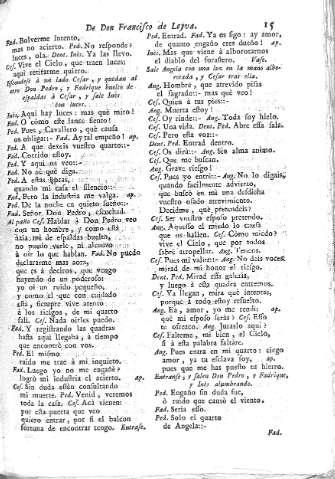 De Don Francisco de Leyva. 15
Fad. Bolverme intento,
mas no acierto. Ped. No responde?
luces, ola. Dent. Ines. Ya las llevo.
Ces. Vive el Cielo, que traen luces;
aqui retirarme quiero.
Escondese à un lado Cesar, y quedan al
otro Don Pedro, y Fadrique buelto de
espaldas à Cesar, y sale Inès
con luces.
Inès. Aqui hay luces: mas què miro!
Fad. O còmo este lance siento!
Ped. Pues, Cavallero, què causa
os obliga:- Fad. Ay tal empeño! ap.
Ped. A que dexeis vuestro quarto:-
Fad. Corrido estoy.
Ped. Y aqui os veo:-
Fad. No sè què diga.
Ped. A estas horas,
quando mi casa el silencio:-
Fad. Pero la industria me valga. ap.
Ped. De la noche en quieto sueño:-
Fad. Señor Don Pedro, escuchad.
Al paño Ces. Hablar à Don Pedro veo
con un hombre, y como està
de espaldas buelto,
no puedo verle, ni alcanzo
à oir lo que hablan. Fad. No puedo
declararme mas aora,
que es à deciros, que vengo
huyendo de un poderoso:
yo oì un ruido pequeño,
y como el que con cuidado
està, siempre vive atento
à los riesgos, de mi quarto
salì. Ces. Nada oirles puedo.
Ped. Y registrando las quadras
hasta aqui llegaba, à tiempo
que encontrè con vos.
Ped. El mismo
ruido me trae à mi inquieto.
Fad. Luego yo no me engañè?
logrò mi industria el acierto. ap.
Ces. Sin duda estàn consultando
mi muerte. Ped. Venid, veremos
toda la casa. Ces. Acà vienen:
por esta puerta que veo
quiero entrar, por si el balcon
fortuna de encontrar tengo. Entrase.
Ped. Entrad. Fad. Ya os sigo: ay amor,
de quanto engaño eres dueño! ap.
Inès. Mas que viene à alborotarnos
el diablo del forastero. Vase.
Sale Angela con una luz en la mano alborotada,
y Cesar tras ella.
Ang. Hombre, que atrevido pisas
el sagrado:- mas què veo?
Ces. Quien à tus pies:-
Ang. Muerta estoy!
Ces. Oy rinde:- Ang. Toda soy hielo.
Ces. Una vida. Dent. Ped. Abre essa sala.
Ces. Pero esta voz:-
Dent. Ped. Entrad dentro.
Ces. Os dirà:- Ang. Sin alma animo.
Ces. Que me buscan.
Ang. Grave riesgo!
Ces. Pues yo entrè:- Ang. No lo digais,
quando facilmente advierto,
que busco en mi una desdicha
vuestro osado atrevimiento.
Decidme, què pretendeis?
Ces. Ser vuestro esposo pretendo.
Ang. Aquesso el modo lo causa
que os hallen. Ces. Còmo miedo?
vive el Cielo, que por todos
sabrè atropellar. Ang. Teneos.
Ces. Pues mi valiente- Ang. No deis voces,
mirad de mi honor el riesgo.
Dent. Ped. Mirad essa galeria,
y luego à esta quadra entremos.
Ces. Ya llegan, mira què intentas,
porque à todo estoy resuelto.
Ang. Ea, amor, yo me rendì: ap.
què mi esposo seràs? Ces. Esso
te ofrezco. Ang. Juraslo aqui?
Ces. Falteme, mi bien, el Cielo,
si à esta palabra faltàre.
Ang. Pues entra en mi quarto: ciego
amor, ya tu esclava soy, ap.
pues que me has puesto tu hierro.
Entranse, y salen Don Pedro, y Fadrique,
y Inès alumbrando.
Ped. Engaño sin duda fue,
ò ruido que causò el viento.
Fad. Seria esso.
Ped. Solo el quarto
de Angela:-
Fad.